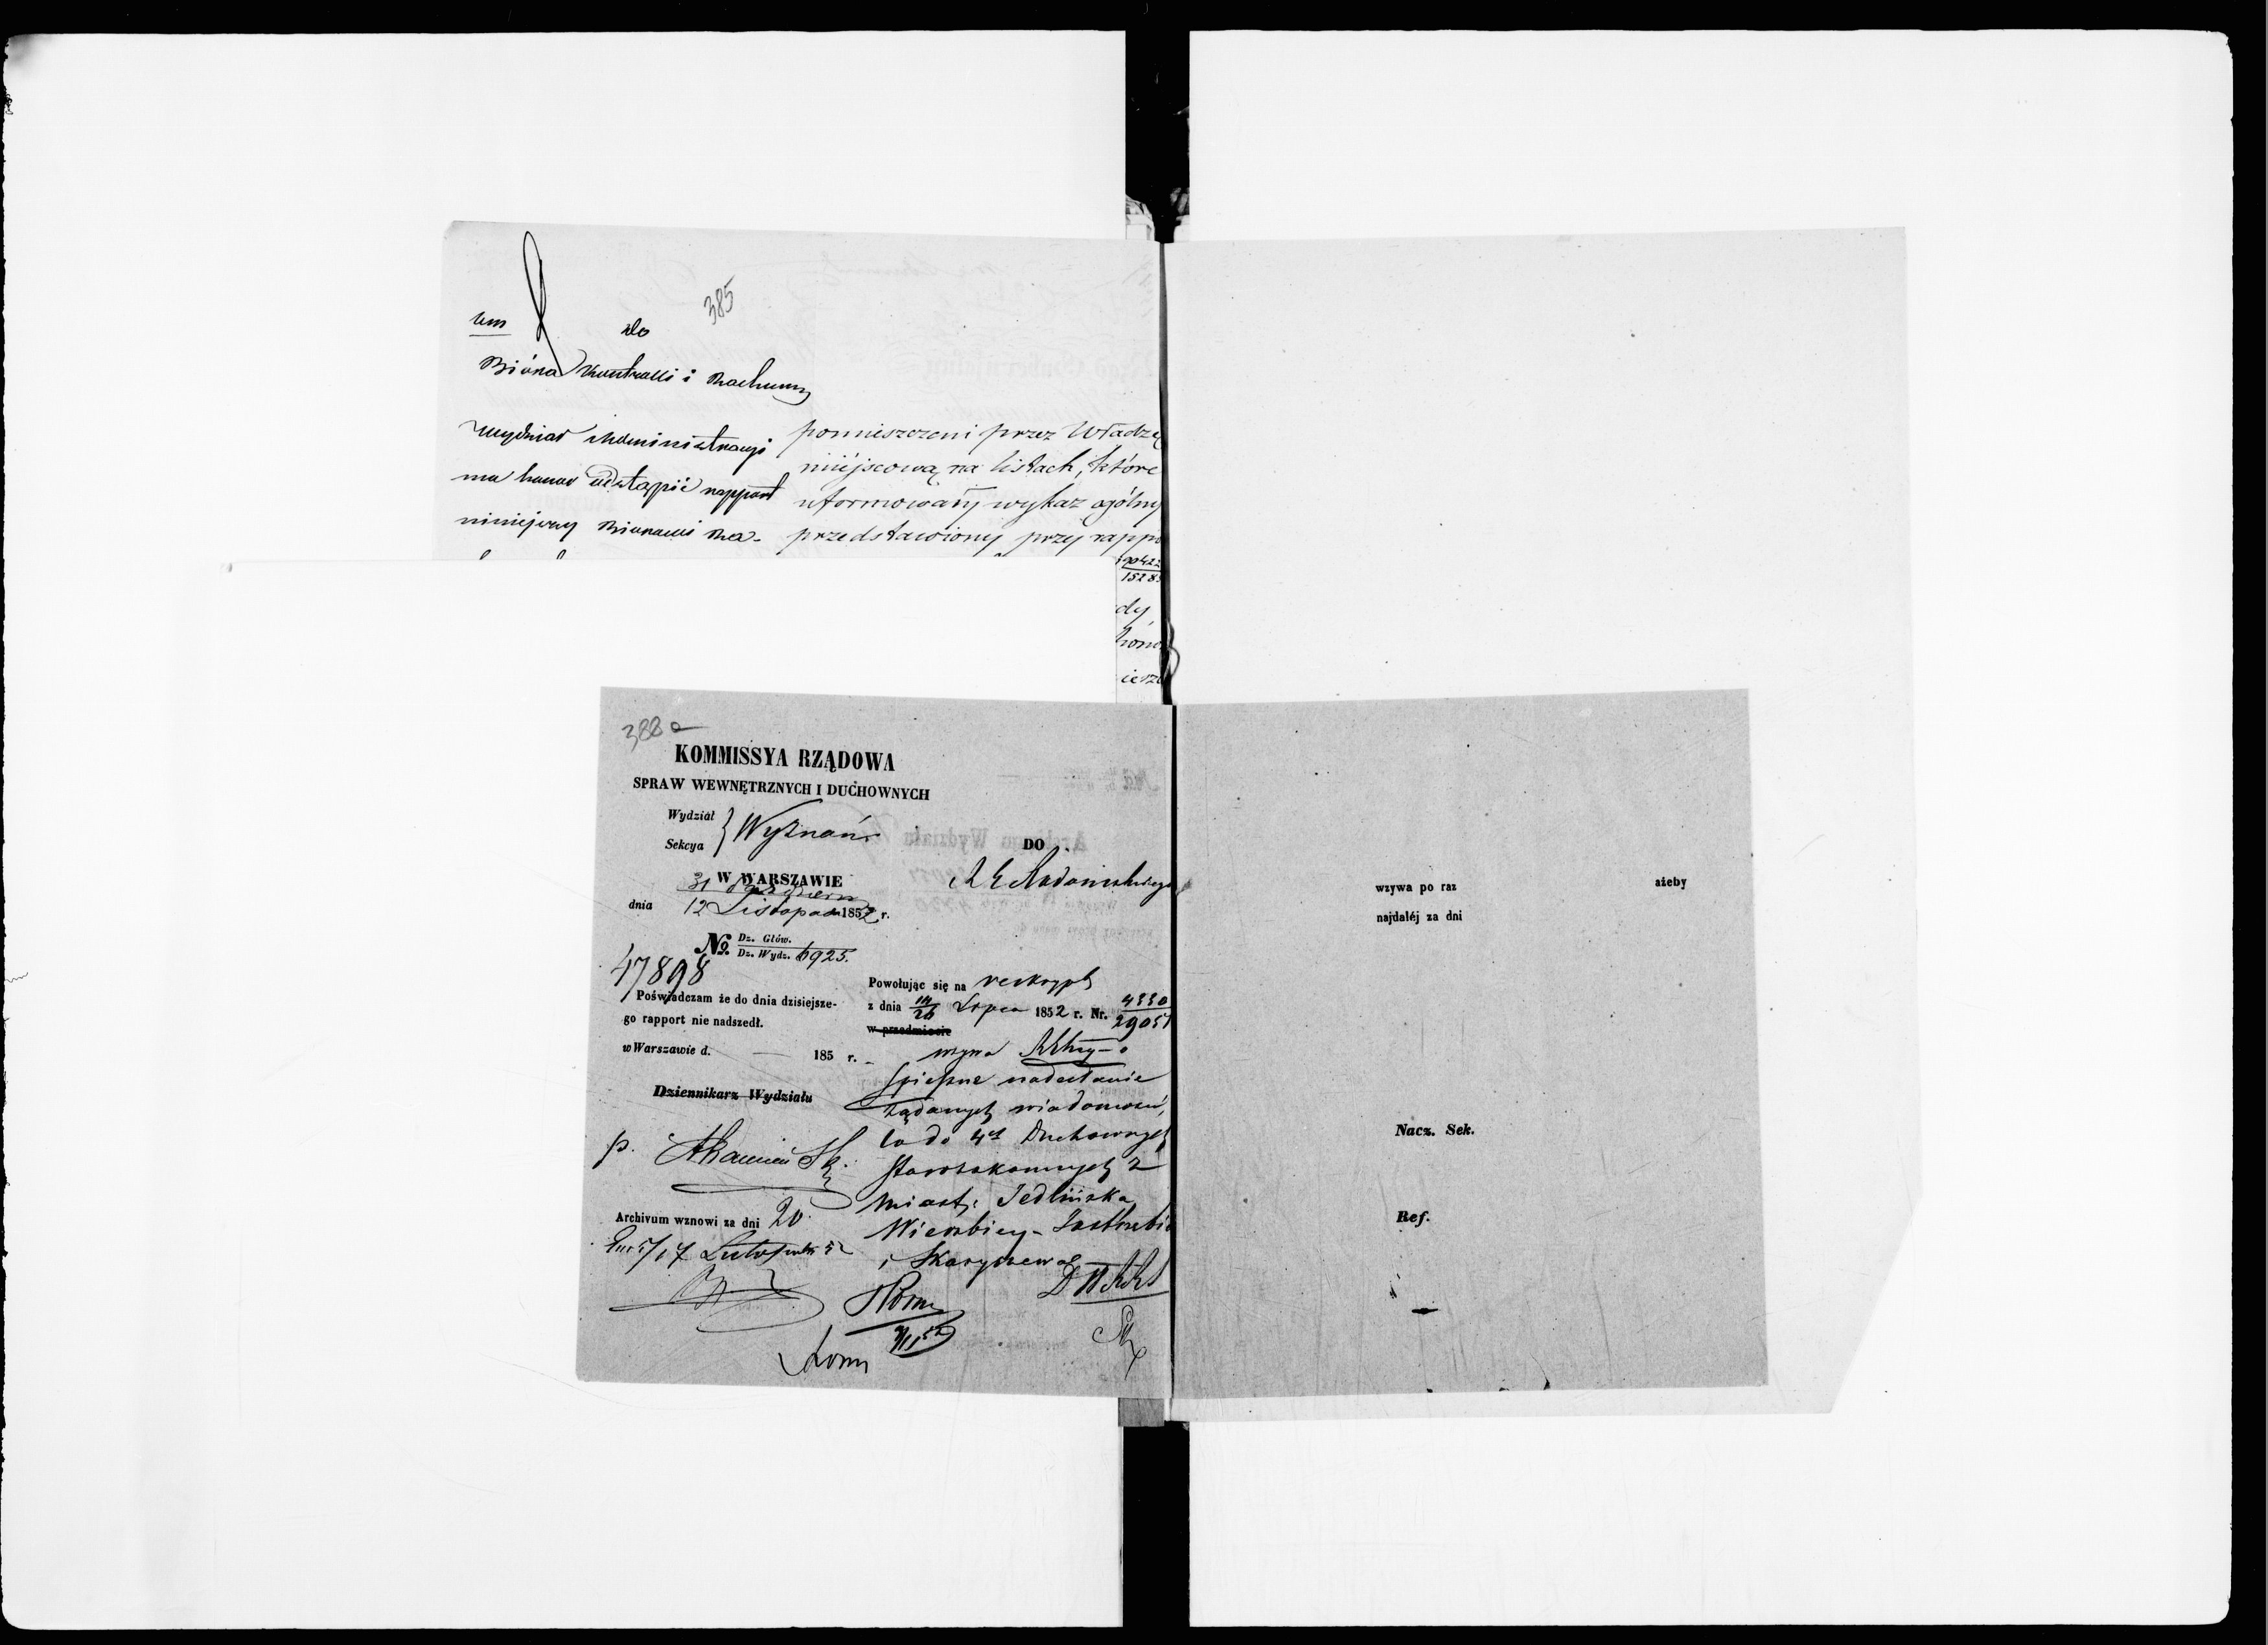 385
do
Bióra Kontrolli i Rachun
Wydział Administracyi
ma honor odstąpić rapport
niniejszy Biurowi Ra-
pomieszczeni przez Władzę
miejscową na listach, które
uformowany wykaz ogólny
przedstawiony przy rappo
dy
388 a
KOMMISSYA RZĄDOWA
SPRAW WEWNĘTRZNYCH I DUCHOWNYCH
Wydział
Sekcya
Wyznań
W WARSZAWIE
31 Paździer
dnia 12 Listopada 1852 r.
No. Dz. Głów.
Dz. Wydz. 6925.
47898
Poświadczam że do dnia dzisiejsze-
go rapport nie nadszedł.
w Warszawie d. 185 r.
Dziennikarz Wydziału
p.
Archivum wznowi za dni 20
DO
R G Radomskiego
Powołując się na reskrypt
z dnia 14/26 Lipca 1852 r. Nr. 4330/29051
w przedmiocie
wzywa
spieszne nadesłanie
żądanych wiadomości,
co do 4ch Duchownych
starozakonnych z
miast: Jedlińska
Wierzbicy - Jastrzębia
i Skaryszewa
wzywa po raz ażeby
najdaléj za dni
Nacz. Sek.
Ref.